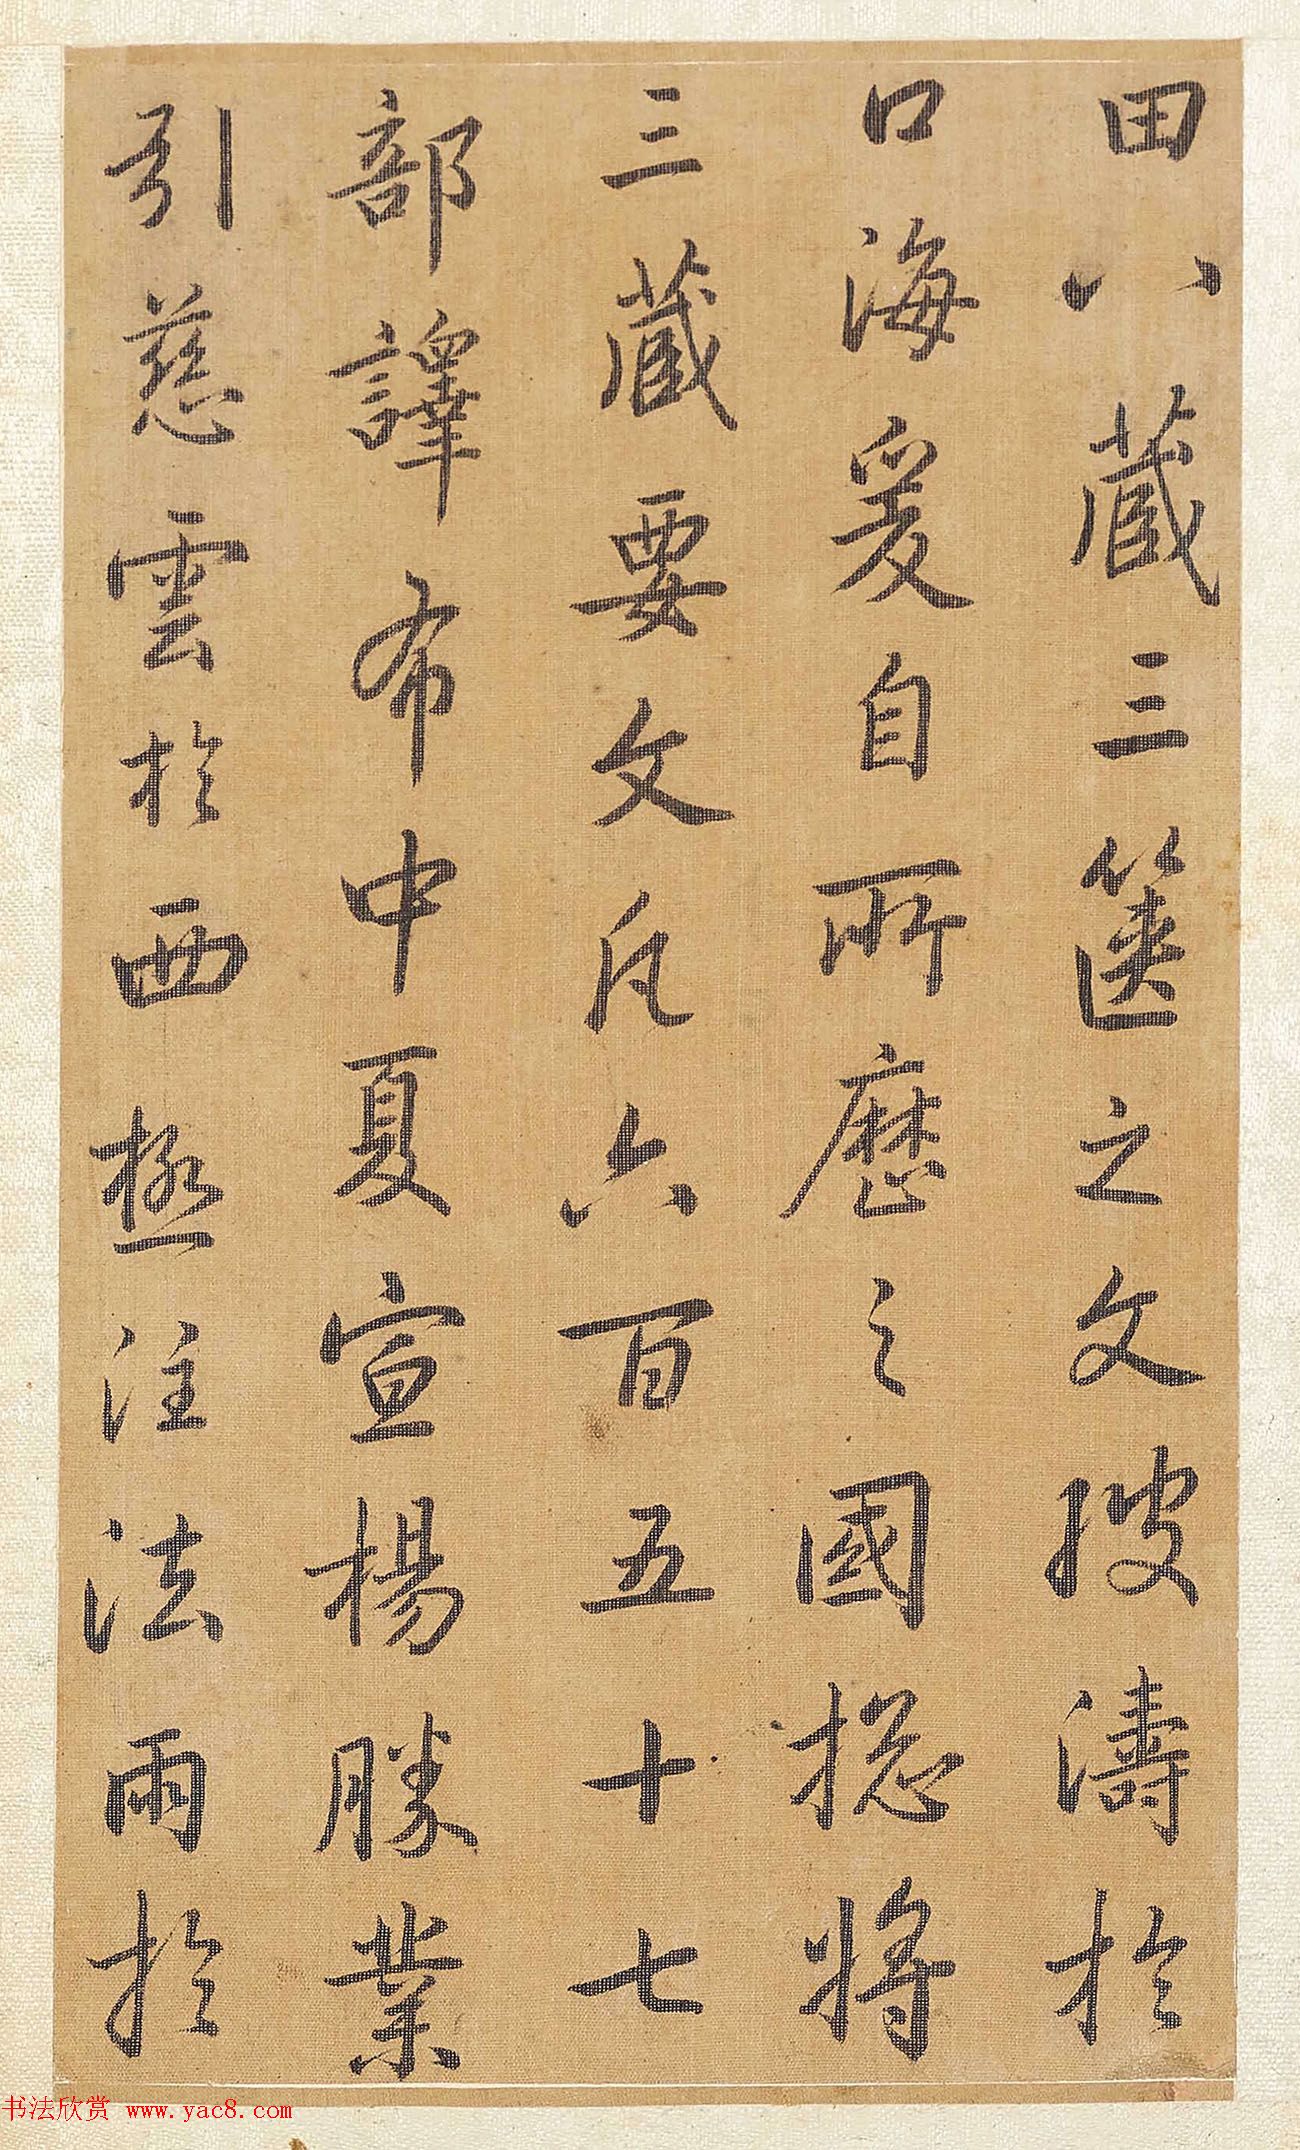 田八藏三箧之文波濤於
口海爰自所歷之國揔將
三藏要文凡六百五十七
部譯布中夏宣楊勝業
引慈雲於西極注法雨於
书法欣赏 www.yac8.com